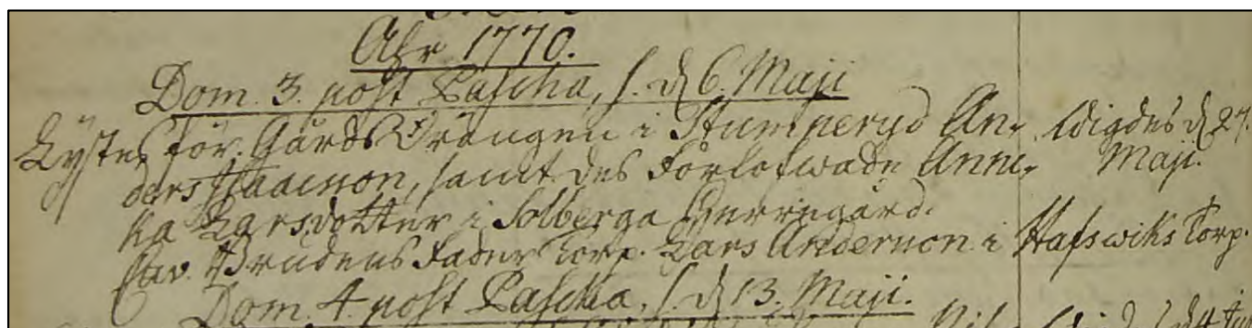 Åhr 1770.
Dom. 3. post Pascha, s. d. 6. Maji
Lystes för Gårds Drängen i Stumperyd An- Wigdes d. 27.
ders Isacsson, samt des Förlofwade Anni- Maji.
ka Larsdotter i Solberga Herregård.
Cav. Brudens Fader Torp. Lars Andersson i Hafswiks Torp.
Dom. 4. post Pascha, s. d. 13. Maji.